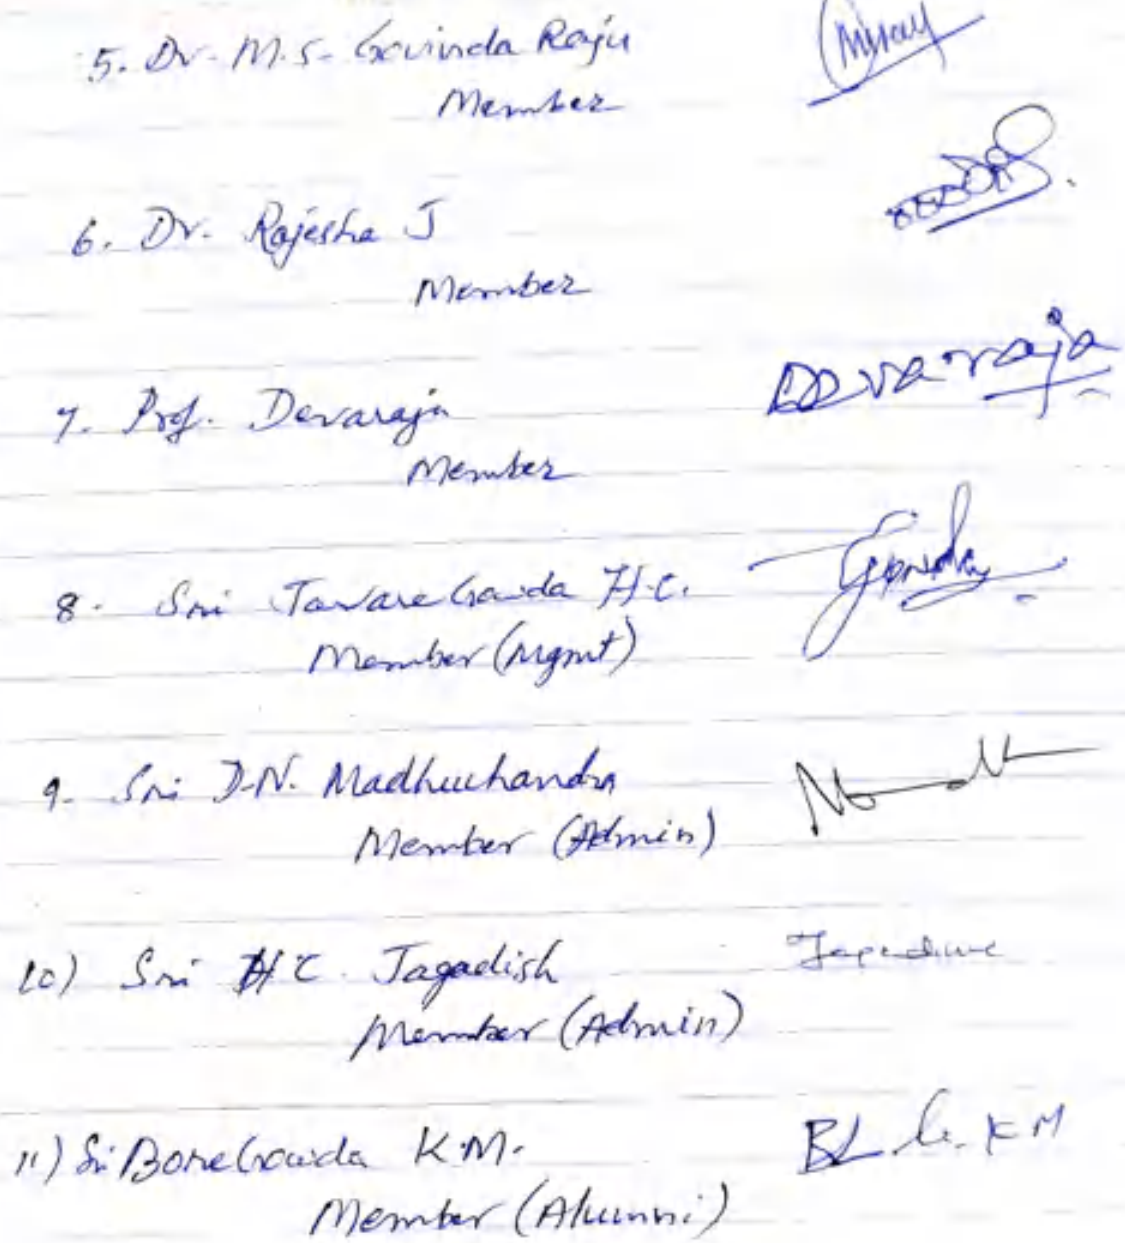 5. Dr. M.S. Govinda Raju
Member
6. Dr. Rajesha J
Member
7. Prof. Devaraja
Devaraja
Member
8. Sri Tavare Gowda H.C.
Gowda
Member (Mgmt)
9. Sri D.N. Madhuchandra
Member (Admin)
10) Sri H C Jagadish
Member (Admin)
11) Sri Bore Gowda K.M.
K M
Member (Alumni)